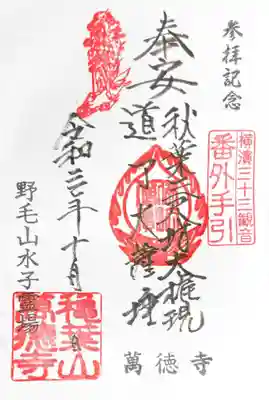 參拝記念
横濱三十三観音
番外手引
奉安
秋葉三尺坊大権現
道了大薩埵
令和三年十月 日
野毛山水子霊場
萬徳寺
秋葉山
萬徳寺